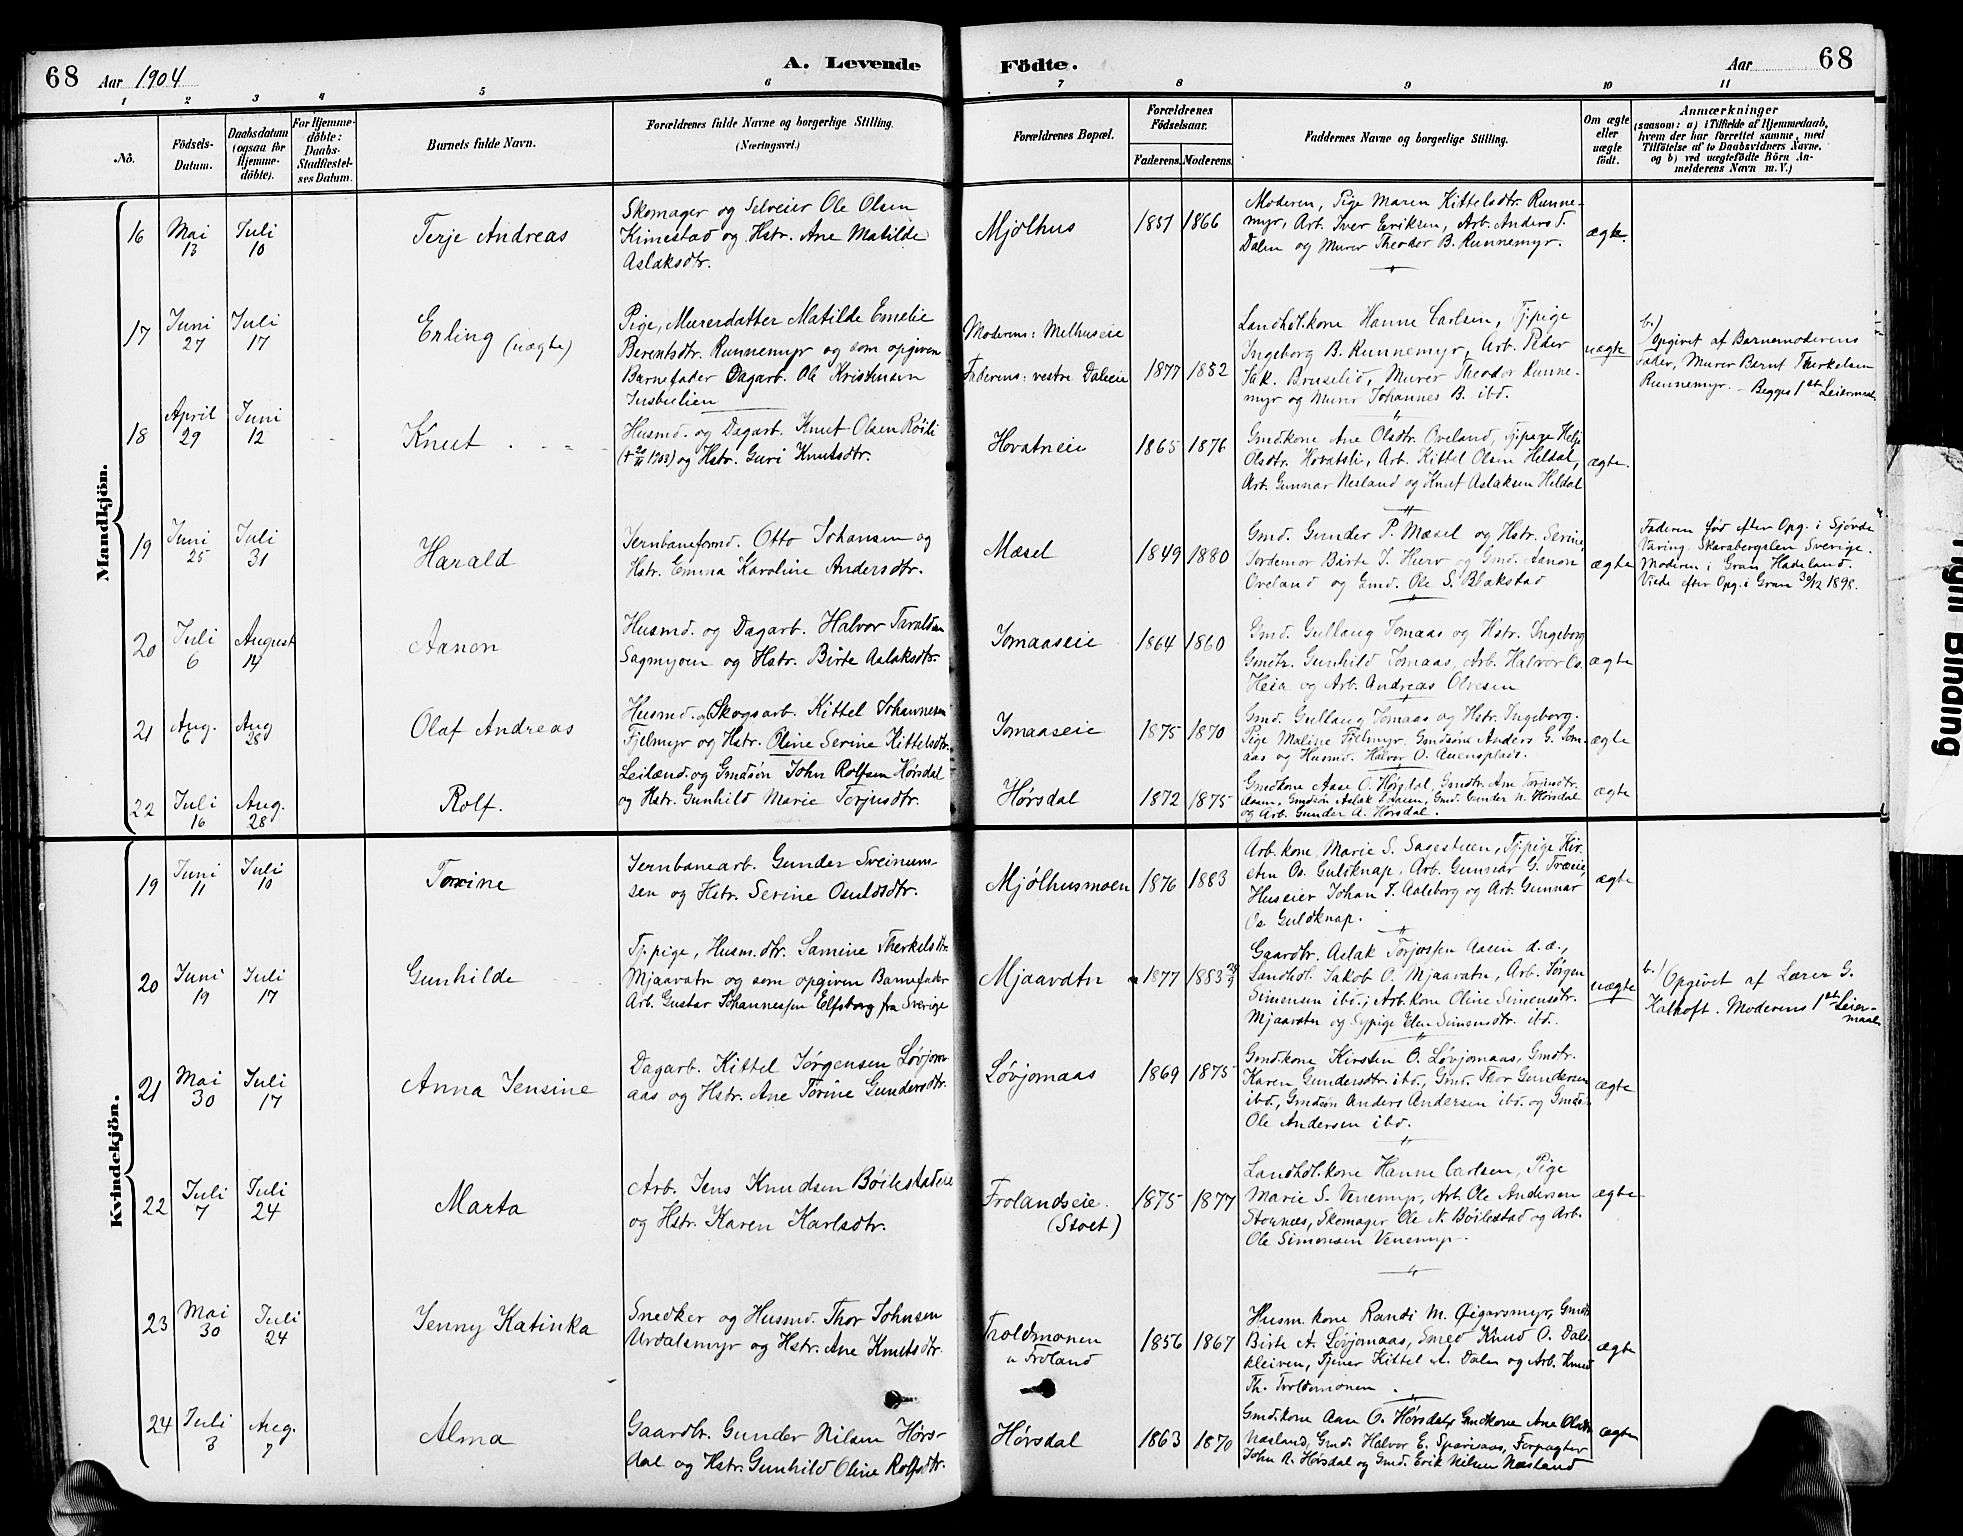 68 Aar 1904
A. Levende Födte.
Aar 68
1 2 3 4 5 6 7 8 9 10 11
No.
Födsels-Datum.
Daabsdatum (ogsaa for Hjemme-döbte).
For Hjemme-döbte: Daabs-Stadfæstel-ses Datum.
Barnets fulde Navn.
Forældrenes fulde Navne og borgerlige Stilling.
(Næringsvei.)
Forældrenes Bopæl.
Forældrenes Födselsaar.
Faderens. Moderens.
Faddernes Navne og borgerlige Stilling.
Om ægte eller uægte født.
Anmærkninger
(saasom: a) i Tilfælde af Hjemmedaab,
hvem der har forrettet samme, med
Tilföielse af to Daabsvidners Navne,
og b) ved uægtefödte Börn An-
melderens Navn m. V.)
Mandkjön.
16 Mai 13 Juli 10 Terje Andreas
Skomager og Selveier Ole Olsen
Kimestad og Hstr. Ane Matilde
Aslaksdtr.
Mjølhus 1851 1866
Moderen, Pige Maren Kittelsdtr. Runne-
myr, Arb. Iver Eriksen, Arb. Anders T.
Dalen og Murer Theodor B. Runnemyr.
ægte
17 Juni 27 Juli 17 Erling (uægte)
Pige, Murerdatter Matilde Emelie
Berentsdtr. Runnemyr og som opgiven
Barnefader Dagarb. Ole Kristensen
Moderens: Melhuseie
Faderens: vestre Daleie 1877 1882
Landhol.kone Hanne Carlsen, Tj.pige
Ingeborg B. Runnemyr, Arb. Peder
Jak. Bruselid, Murer Theodor Runne-
myr og Murer Johannes B. ibd.
uægte
b.) Opgivet af Barnemoderens
Fader, Murer Bernt Therkelsen
Runnemyr. – Begges 1ste Leiermaal.
18 April 29 Juni 12 Knut
Husmd. og Dagarb. Knut Olsen Røili
og Hstr. Guri Knutsdtr.
Hovatneie 1865 1876
Gmd.kone Ane Olsdtr. Oveland, Tj.pige Helje
Olsdtr. Hovatsli, Arb. Kittel Olsen Heldal,
Arb. Gunnar Nesland og Knut Aslaksen Heldal
ægte.
19 Juni 25 Juli 31 Harald
Jernbaneformd. Otto Johansen og
Hstr. Emma Karoline Andersdtr.
Mæsel 1849 1880
Gmd. Gunder P. Mæsel og Hstr. Serine,
Jordemor Birte J. Hurv og Gmd. Aanon
Oveland og Gmd. Ole S. Blakstad
ægte
Faderen fød efter Opg. i Sjövde
Varing Skarabergslen Sverige.
Moderen i Gran Hadeland.
Viede efter Opg. i Gran 30/12 1898.
20 Juli 6 August 14 Aanon
Husmd. og Dagarb. Halvor Taraldsen
Sagmyren og Hstr. Birte Aslaksdtr.
Jomaaseie 1864 1860
Gmd. Gullaug Jomaas og Hstr. Ingeborg
Gmdtr. Gunhild Jomaas, Arb. Halvor Os.
Heia og Arb. Andreas Olvesen
ægte
21 Aug. 6 Aug 28 Olaf Andreas
Husmd. og Skogsarb. Kittel Johannesen
Fjelmyr og Hstr. Oline Serine Kittelsdtr.
Jomaaseie 1875 1870
Gmd. Gullaug Jomaas og Hstr. Ingeborg.
Pige Maline Fjelmyr. Gmdsøn Anders G. Jom-
aas og Husmd. Halvor O. Auensplads.
ægte
22 Juli 16 Aug. 28 Rolf.
Leilænd. og Gmdsøn John Rolfsen Hørsdal
og Hstr. Gunhild Marie Torjusdtr.
Hørsdal 1872 1875
Gmdkone Aase O. Hørsdal, Gmdtr. Ane Torjusdtr.
Aasen, Gmdsøn Aslak T. Aasen, Gmd. Gunder N. Hørsdal
og Arb. Gunder A. Hørsdal.
ægte
Kvindekjön.
19 Juni 11 Juli 10 Torine
Jernbanearb. Gunder Sveinum-
sen og Hstr. Serine Osuldsdtr.
Mjølhusmoen 1876 1883
Arb.kone Marie S. Sagesteen, Tj.pige Kir-
sten Os. Guldknap, Arb. Gunnar G. Træeie,
Huseier Johan T. Aaleborg og Arb. Gunnar
Os. Guldknap.
ægte
20 Juni 19 Juli 17 Gunhilde
Tj.pige, Husm.dtr. Samine Therkelsdtr.
Mjaavatn og som opgiven Barnefader
Arb. Gustav Johannessen Elfsborg fra Sverige
Mjaavatn 1877 1883
Gaardbr. Aslak Torjussen Aasen d.æ.,
Landhol. Jakob O. Mjaavatn, Arb. Jørgen
Simensen ibd.; Arb.kone Oline Simensdtr.
Mjaavatn og Sypige Elen Simensdtr. ibd.
uægte
b.) Opgivet af Lærer G.
Kalhoft. Moderens 1ste Leier-
maal
21 Mai 30 Juli 17 Anna Jensine
Dagarb. Kittel Jørgensen Løvjom-
aas og Hstr. Ane Torine Gundersdtr.
Løvjomaas 1869 1875
Gmd.kone Kirsten O. Løvjomaas, Gmdtr.
Karen Gundersdtr. ibd., Gmd. Thor Gundersen
ibd., Gmdsøn Anders Andersen ibd. og Gmdsøn
Ole Andersen ibd.
ægte
22 Juli 7 Juli 24 Marta
Arb. Jens Knudsen Bøilestadeie
og Hstr. Karen Karlsdtr.
Frolandseie. (Stoet) 1875 1877
Landhol.kone Hanne Carlsen, Pige
Marie S. Venemyr, Arb. Ole Andersen
Stornæs, Skomager Ole N. Bøilestad og Arb.
Ole Simonsen Venemyr.
ægte
23 Mai 30 Juli 24 Jenny Katinka
Snedker og Husmd. Thor Johnsen
Urdalsmyr og Hstr. Ane Knutsdtr.
Troldmonen
u. Froland 1856 1867
Husm.kone Randi M. Øigarsmyr, Gmdtr.
Birte A. Løvjomaas, Smed Knud O. Dals-
kleiven, Tjener Kittel A. Dalen og Arb. Knud
Th. Troldmonen.
ægte
24 Juli 3 Aug. 7 Alma
Gaardbr. Gunder Nilsen Hørs-
dal og Hstr. Gunhild Oline Rolfsdtr.
Hørsdal 1863 1870
Gmd.kone Aase O. Hørsdal, Gmdkone Ane Olsdtr.
Næsland, Gmd. Halvor E. Sparsaas, Forpagter
John R. Hørsdal og Gmd. Erik Nilsen Næsland
ægte
Tight Binding